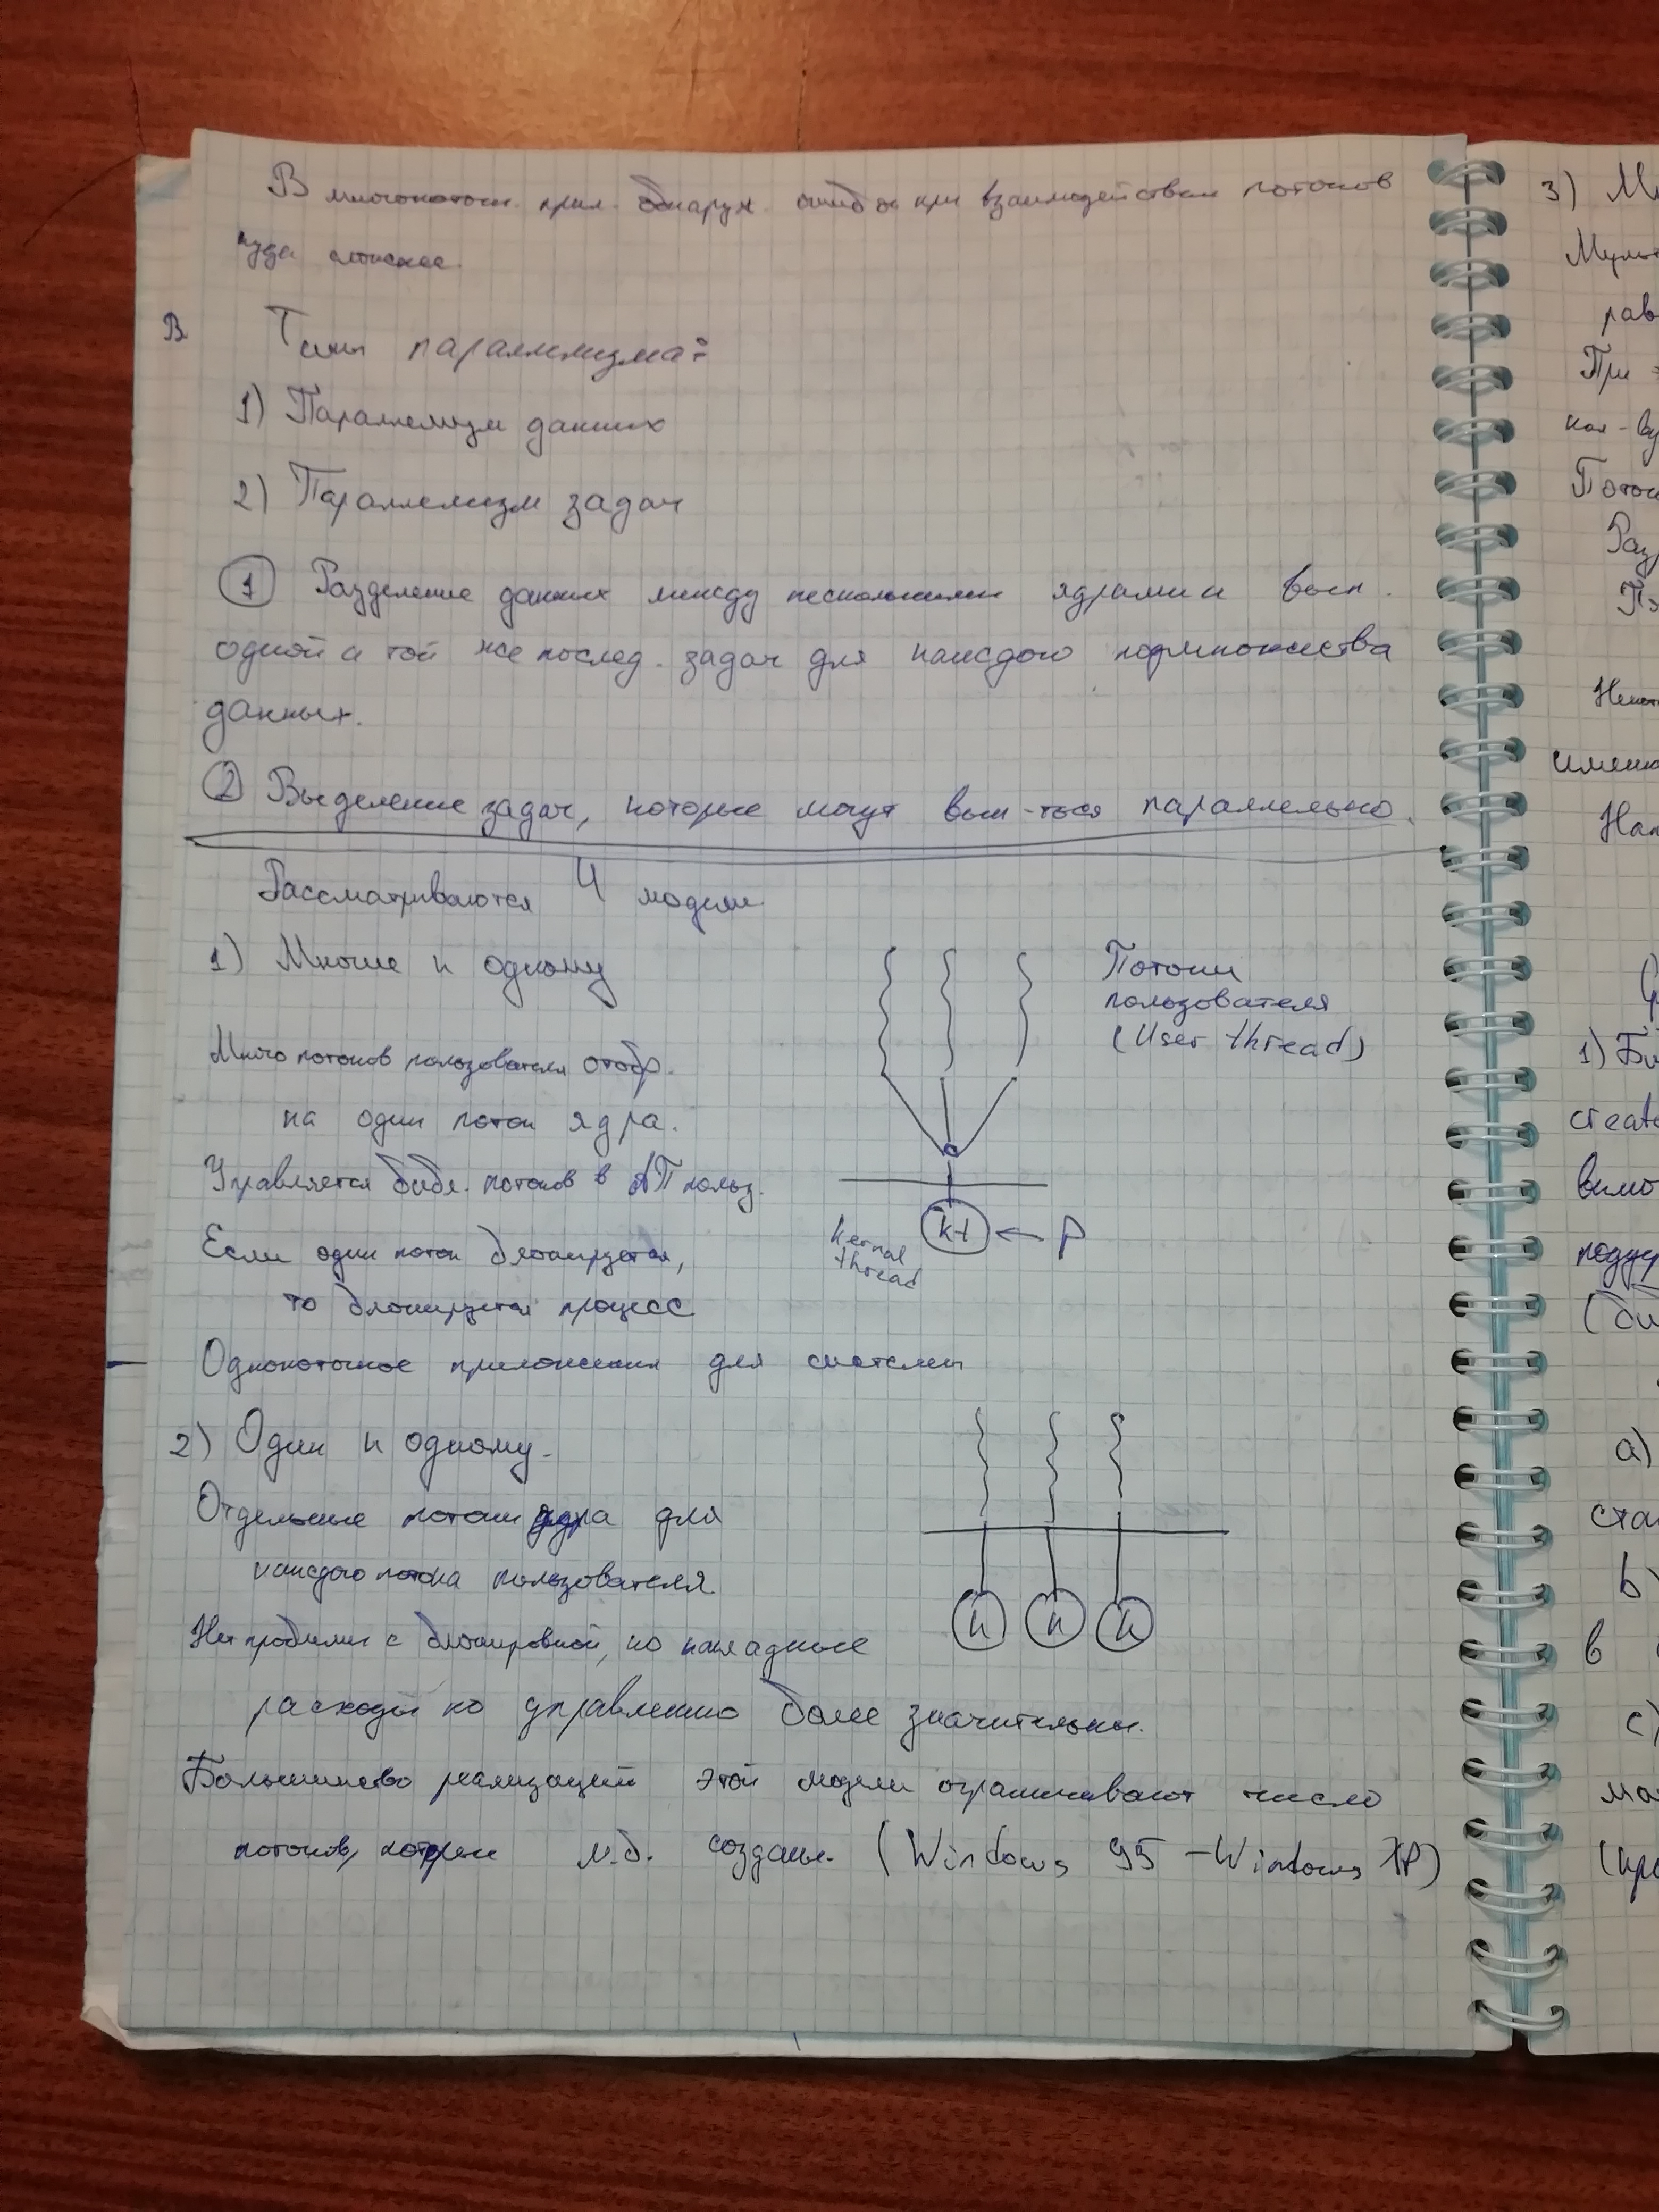 В многопоточ. прил. обнаруж. ошибок при взаимодействии потоков
куда сложнее.
В
Типы параллелизма:
1) Параллелизм данных
2) Параллелизм задач
1 Разделение данных между несколькими ядрами и вып.
одной и той же послед. задач для каждого подмножества
данных.
2 Выделение задач, которые могут вып-ться параллельно.
Рассматриваются 4 модели
1) Многие к одному
Потоки
пользователя
(User thread)
Много потоков пользователя отобр.
на один поток ядра.
Управляется библ. потоков в АП польз.
kt ← P
kernal
thread
Если один поток блокируется,
то блокируется процесс
Однопоточное приложения для системы
2) Один к одному.
Отдельные потоки ядра для
каждого потока пользователя.
к к к
Нет проблем с блокировкой, но накладные
расходы по управлению более значительны.
Большинство реализаций этой модели ограничивают число
потоков, котрые м.б. созданы. (Windows 95 - Windows XP)
3)
При
1)
a)
b)
в
c)